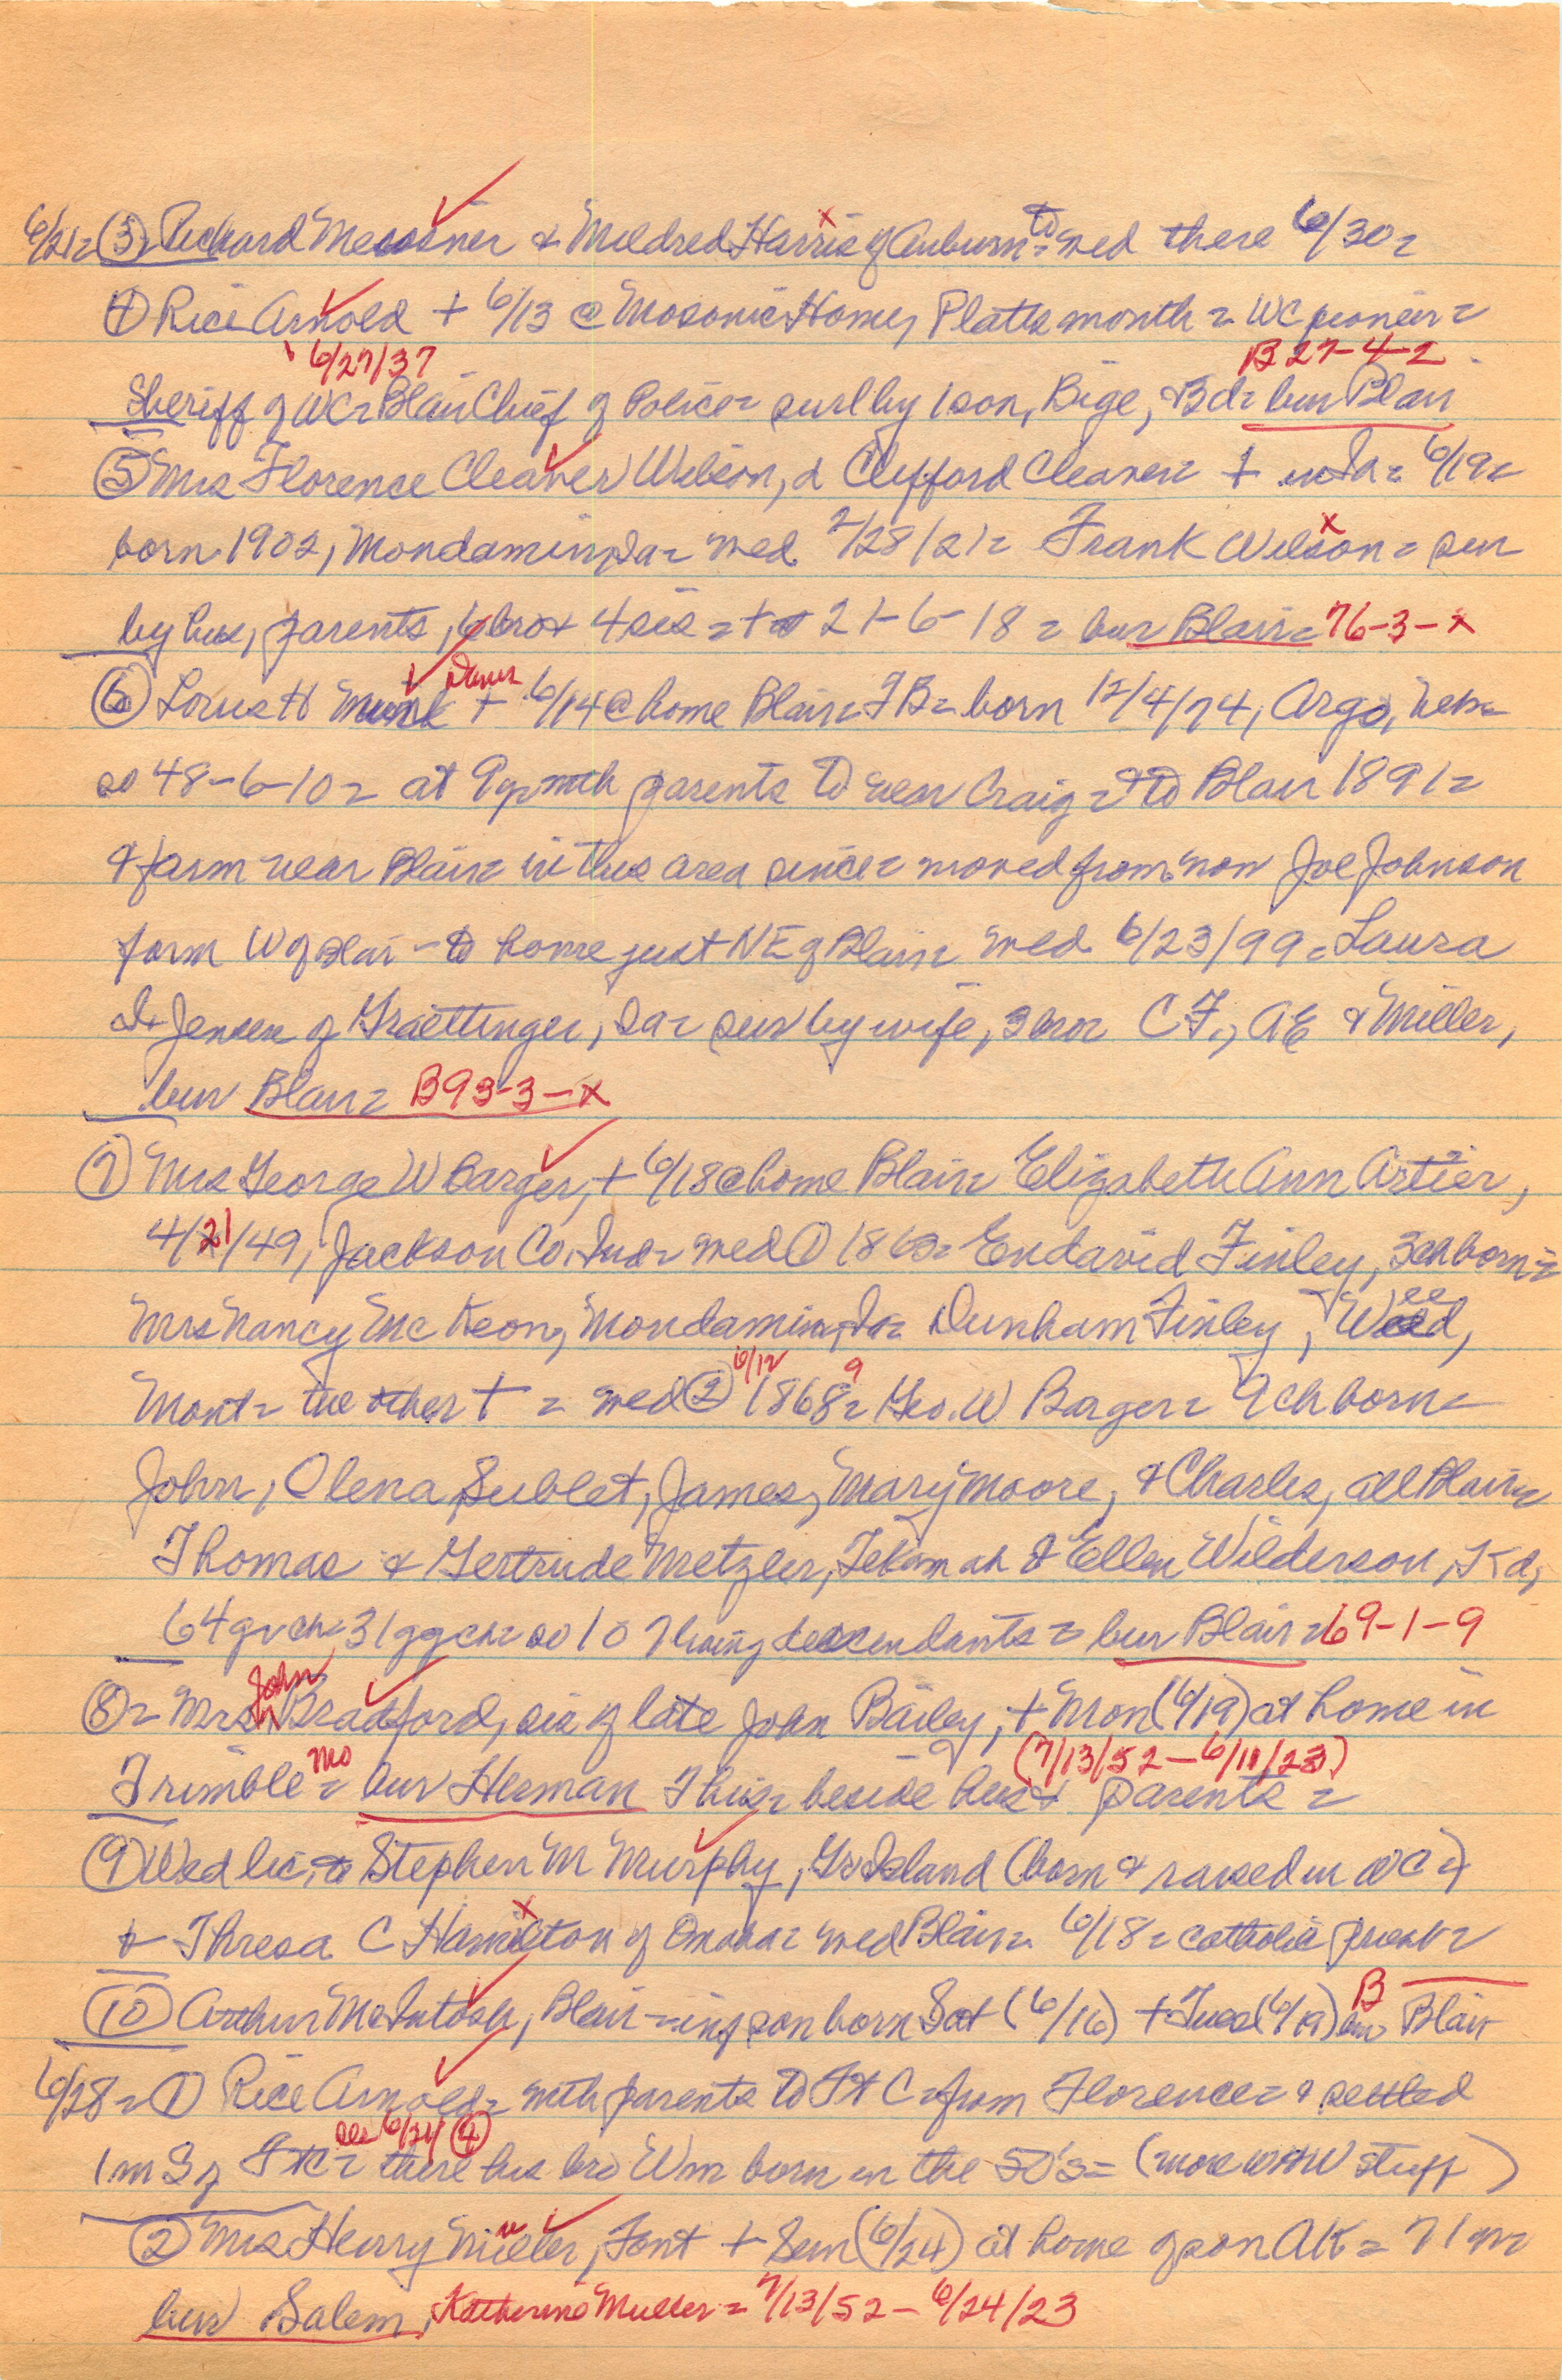 6/21= (3)= Richard Messner & Mildred Harris of Auburn = to wed there 6/30=
(4) Rice Arnold + 6/13 @ Masonic Home, Plattsmouth = WC pioneer =
6/27/37 B 27-4-2
Sheriff of WC= Blair Chief of Police= sur by 1 son, Bige, & Bd= bur Blair
(5) Mrs Florence Cleaver Wilson, d Clifford Cleaver= + in Ia= 6/19=
born 1902, Mondamin, Ia= wed 2/28/21= Frank Wilson = sur
by hus, parents, 6 bro & 4 sis = + @ 21-6-18 = bur Blair= 76-3-x
(6) Louis H Munk + 6/14 @ home Blair= FB= born 12/4/74, Argo, Neb=
so 48-6-10= at 9y with parents to near Craig = & to Blair 1891=
& farm near Blair= in this area since= moved from now Joe Johnson
farm W of Blair - to home just NE of Blair= wed 6/23/99= Laura
I Jensen of Graettinger, Ia= sur by wife, 3 bro= CF, AE & Miller,
bur Blair= B93-3-x
(7) Mrs George W Barger, + 6/18 @ home Blair= Elizabeth Ann Artier,
4/21/49, Jackson Co. Ind= wed (1) 1863= Endavid Finley, 3 ch born=
Mrs Nancy McKeon, Mondamin, Ia= Dunham Finley, Weed,
6/12 9
Mont= the other + = wed (2) 1868= Geo. W Barger= 9 ch born=
John, Olena Sublet, James, Mary Moore, & Charles, all Blair=
Thomas & Gertrude Metzler, Tekamah & Ellen Wilderson, Kd,
64 gr ch= 31 gg ch= so 107 living descendants = bur Blair = 69-1-9
John
(8)= Mrs Bradford, sis of late John Bailey, + Mon (6/19) at home in
Mo (7/13/52 - 6/11/23)
Trimble = bur Herman This= beside hus & parents =
(9) Wed lic, to Stephen M Murphy, Gr Island (born & raised in WC=)
& Thresa C Hamilton of Omaha= wed Blair= 6/18= catholic priest=
(10) Arthur McIntosh, Blair - inf son born Sat (6/16) + Tues (6/19) bur B Blair
6/28= (1) Rice Arnold= with parents to Ft C= from Florence= & settled
see 6/21 (4)
1m S of Ft C= there his bro Wm born in the 50's= (more WHW stuff)
(2) Mrs Henry Miller, Font + Sun (6/24) at home of son AK = 71 yr=
bur Salem, Katherine Muller = 7/13/52 - 6/24/23